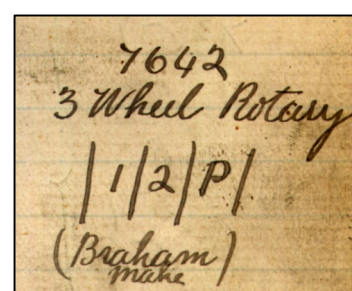 7642
3 Wheel Rotary
|1|2|P|
(Braham
make)